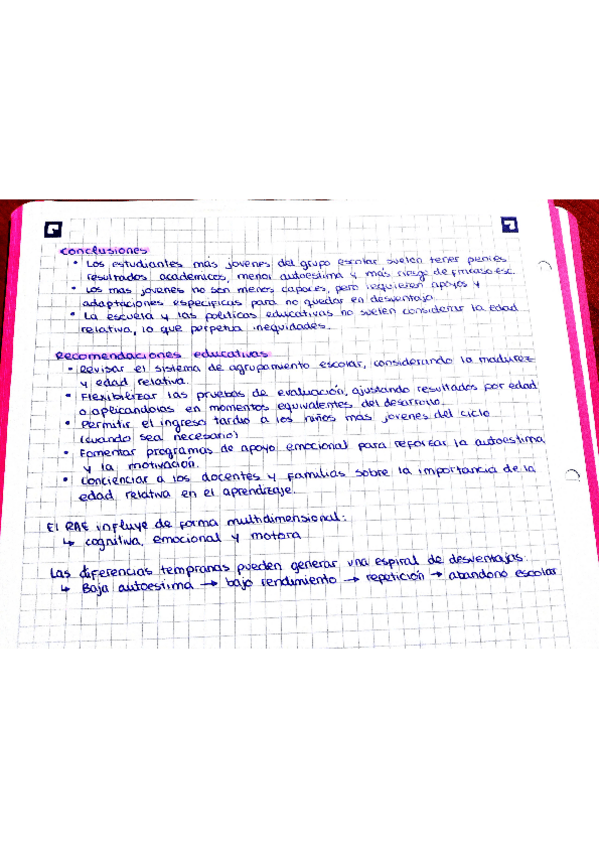 Conclusiones
• Los estudiantes más jovenes del grupo escolar suelen tener peores
resultados academicos, menor autoestima y más riesgo de fracaso esc.
• Los mas jovenes no son menos capaces, pero requieren apoyos y
adaptaciones especificas para no quedar en desventaja.
• La escuela y las políticas educativas no suelen considerar la edad
relativa, lo que perpetua inequidades.
Recomendaciones educativas
• Revisar el sistema de agrupamiento escolar, considerando la madurez
y edad relativa.
• Flexibilizar las pruebas de evaluación, ajustando resultados por edad
o aplicandolas en momentos equivalentes del desarrollo.
• Permitir el ingreso tardio a los niños más jovenes del ciclo
(cuando sea necesario)
• Fomentar programas de apoyo emocional para reforzar la autoestima
y la motivación.
• Concienciar a los docentes y familias sobre la importancia de la
edad relativa en el aprendizaje.
El RAE influye de forma multidimensional:
↳ cognitiva, emocional y motora
Las diferencias tempranas pueden generar una espiral de desventajas.
↳ Baja autoestima → bajo rendimiento → repetición → abandono escolar